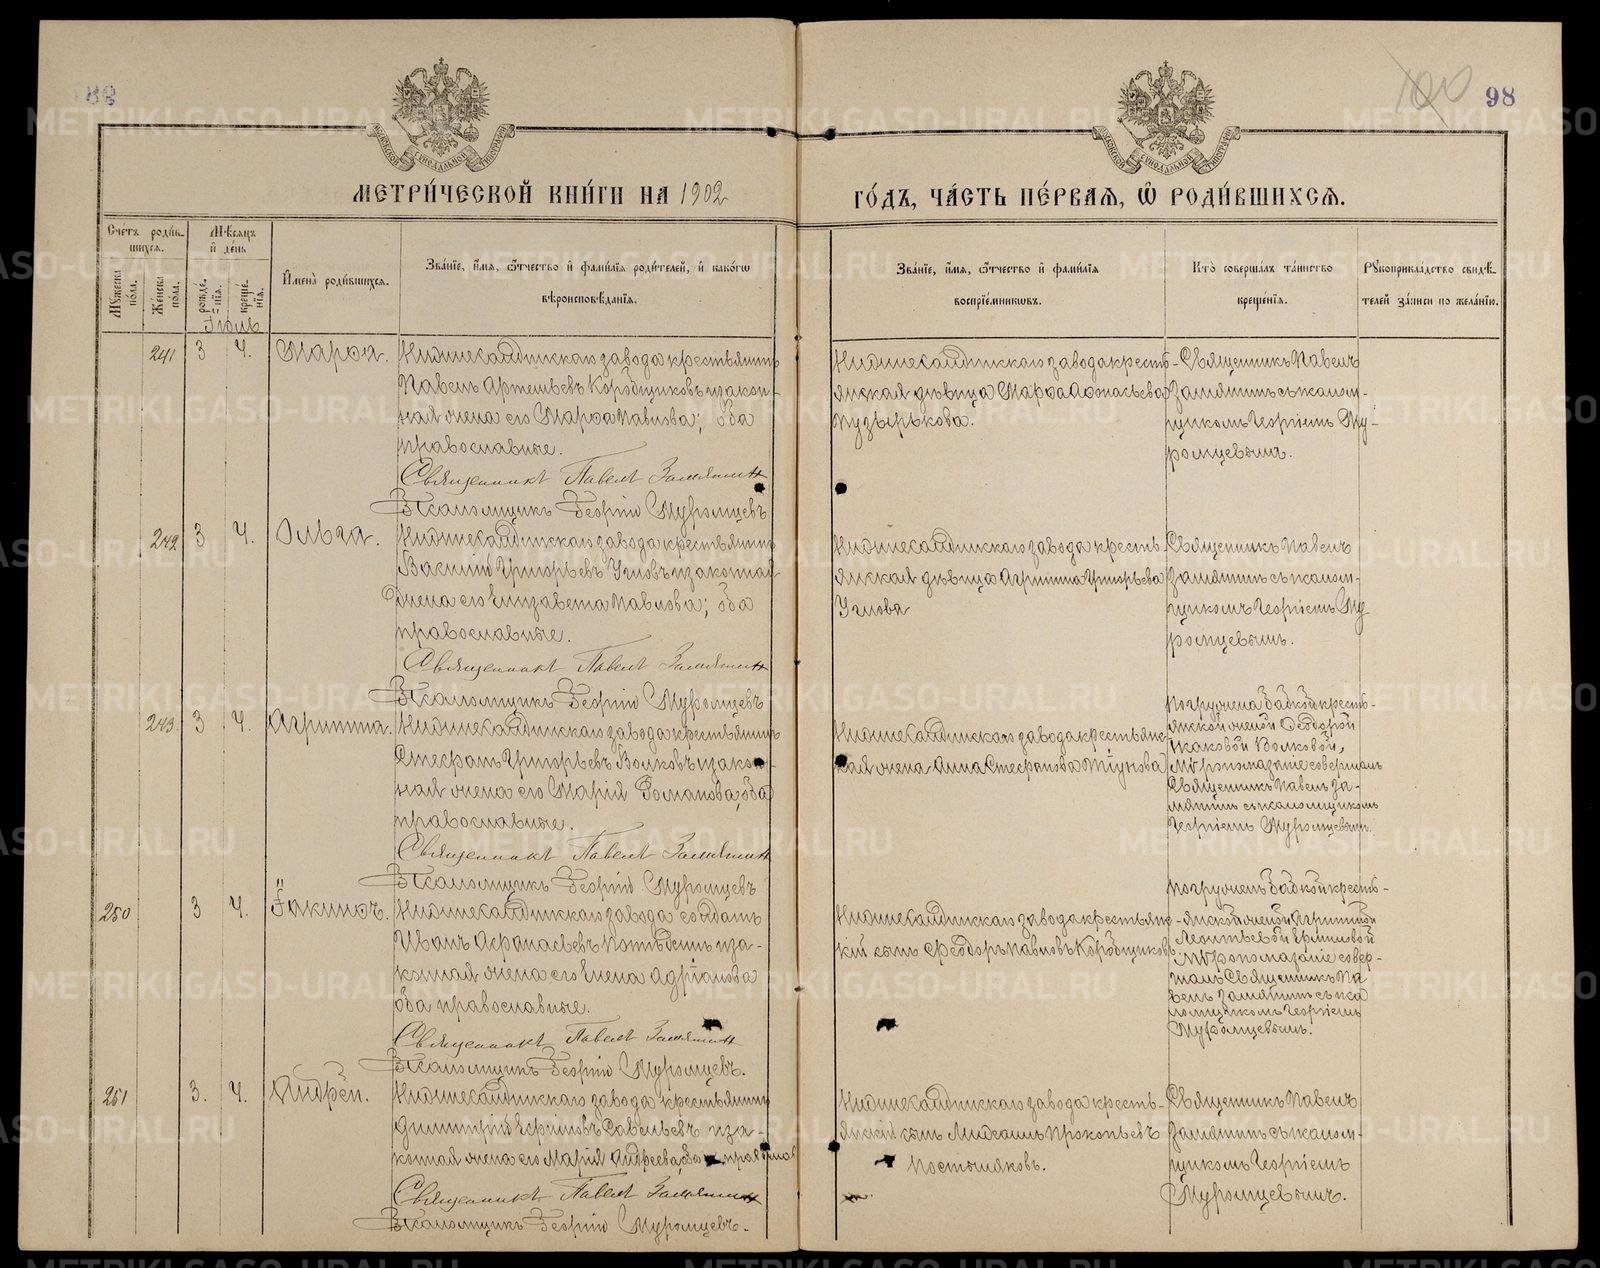 98
МЕТРИ́ЧЕСКОЙ КНИ́ГИ НА 1902
ГО́ДЪ, ЧА́СТЬ ПЕ́РВАѦ, Ѡ РОДИ́ВШИХСѦ.
Сче́тъ роди́в-
шихсѧ.
Мꙋжеска по́ла.
Же́нска по́ла.
Мѣ́сѧцъ и де́нь
рожде́нїѧ.
креще́нїѧ.
Имена̀ роди́вшихсѧ.
Зва́нїе, и́мѧ, ѻ́тчество и фами́лїѧ роди́телей, и како́гѡ
вѣроисповѣ́данїѧ.
Зва́нїе, и́мѧ, ѻ́тчество и фами́лїѧ
воспрїе́мникѡвъ.
Кто̀ соверша́лъ та́инство
креще́нїѧ.
Рꙋкоприкла́дство свидѣ́-
телей за́писи по жела́нїю.
Іюль
241 3 4. Марѳа.
Нижнесалдинскаго завода крестьянинъ
Павелъ Артемьевъ Коробщиковъ и закон-
ная жена его Марѳа Павлова; оба
православные.
Священникъ Павелъ Замятин
Псаломщикъ Георгій Муромцевъ
Нижнесалдинскаго завода кресть-
янская дѣвица Марѳа Аѳанасьева
Пузырькова.
Священникъ Павелъ
Замятинъ съ псалом-
щикомъ Георгіемъ Му-
ромцевымъ.
242 3 4. Ольга.
Нижнесалдинскаго завода крестьянинъ
Василій Григорьевъ Угловъ и законная
жена его Елизавета Павлова; оба
православные.
Священникъ Павелъ Замятин
Псаломщикъ Георгій Муромцевъ
Нижнесалдинскаго завода кресть-
янская дѣвица Агриппина Григорьева
Углова
Священникъ Павелъ
Замятинъ съ псалом-
щикомъ Георгіемъ Му-
ромцевымъ.
243 3 4.
Нижнесалдинскаго завода крестьянинъ
Стефанъ Григорьевъ Волковъ и закон-
ная жена его Марія Романова; оба
православные.
Священникъ Павелъ Замятин
Псаломщикъ Георгій Муромцевъ
Нижнесалдинскаго завода крестьянс-
кая жена Анна Стефанова
Погружена бабкой кресть-
янской женой Ѳедорой
Волковой,
Мѵропомазаніе совершалъ
Священникъ Павелъ За-
мятинъ съ псаломщикомъ
Георгіемъ Муромцевымъ.
250 3 4. Іакинѳъ.
Нижнесалдинскаго завода солдатъ
Иванъ Аѳанасьевъ и за-
конная жена его Елена Адріанова
оба православные.
Священникъ Павелъ Замятин
Псаломщикъ Георгій Муромцевъ.
Нижнесалдинскаго завода крестьянс-
кій сынъ Ѳеодоръ Павловъ Коробщиковъ
Погруженъ бабкой кресть-
янской женой Агриппиной
Леонтьевой Ермиловой
Мѵропомазаніе совер-
шалъ Священникъ Па-
велъ Замятинъ съ пса-
ломщикомъ Георгіемъ
Муромцевымъ.
251 3. 4. Андрей.
Нижнесалдинскаго завода крестьянинъ
Димитрій Ефимовъ Савельевъ и за-
конная жена его Марія Андреева; оба правосл.
Священникъ Павелъ Замятин
Псаломщикъ Георгій Муромцевъ.
Нижнесалдинскаго завода кресть-
янскій сынъ Михаилъ Прокопьевъ
Постыляковъ.
Священникъ Павелъ
Замятинъ съ псалом-
щикомъ Георгіемъ
Муромцевымъ.
METRIKI.GASO-URAL.RU